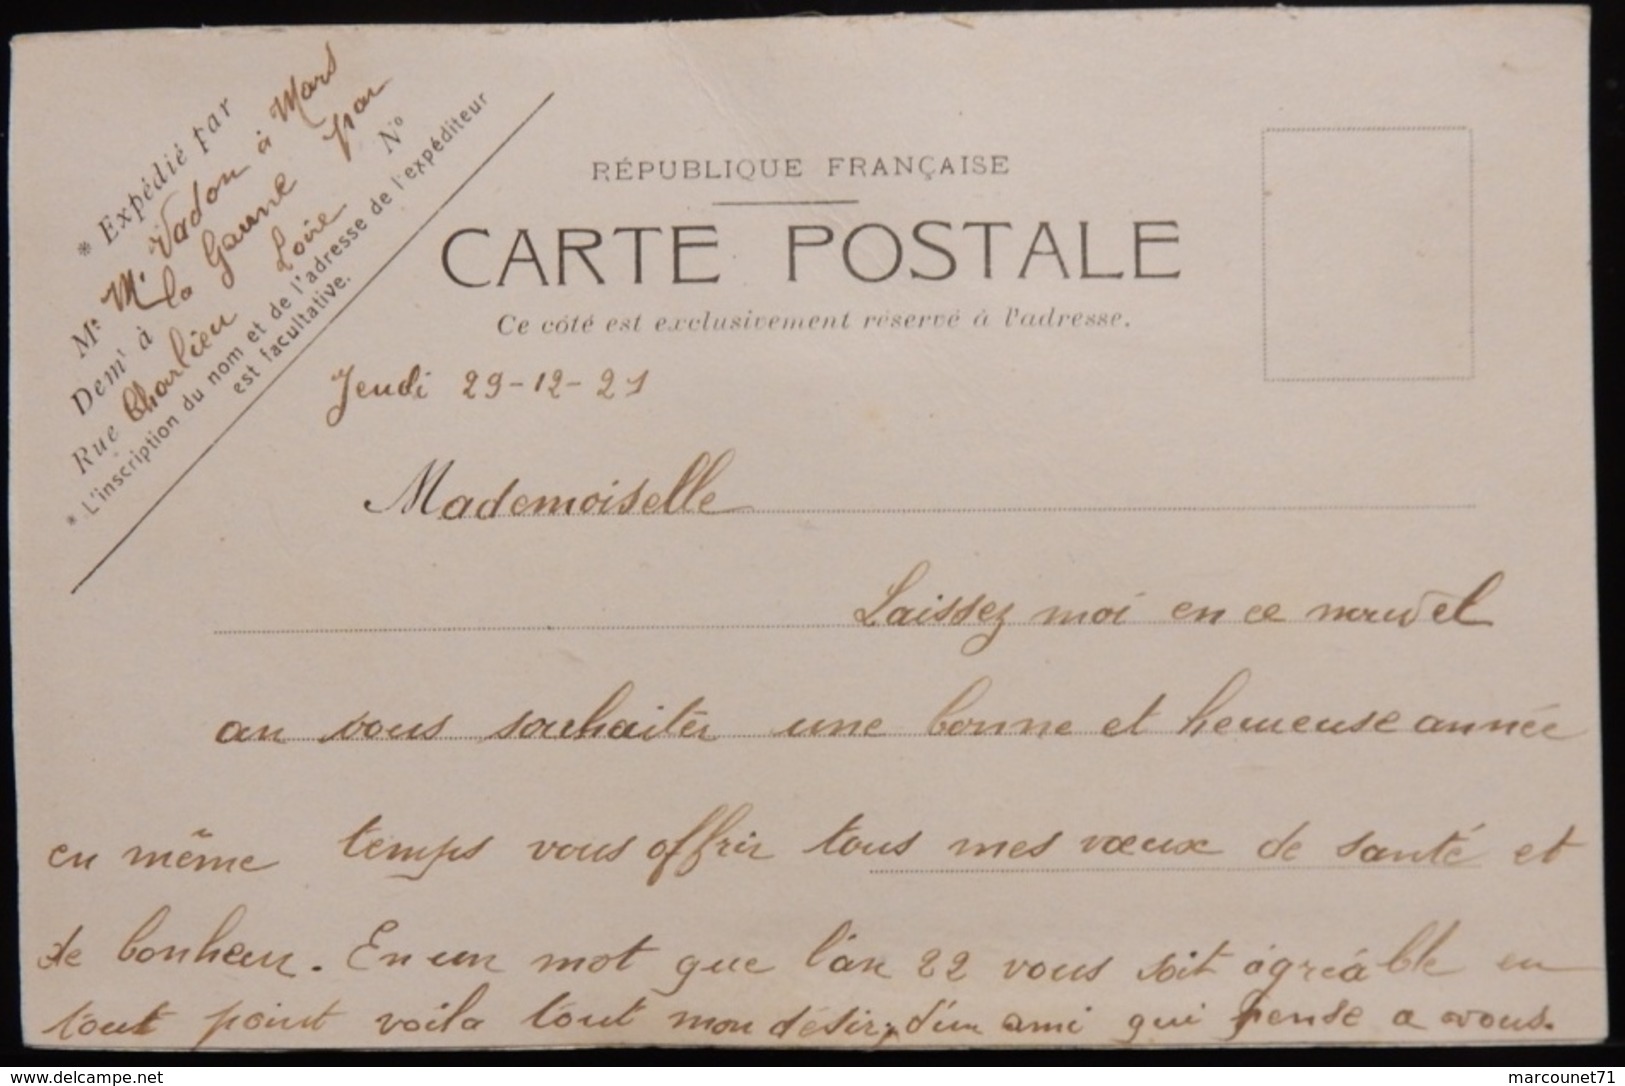 * Expédié Par
Mr M. Vadon à Mars
Demt à la Ganne par
Rue Charlieu Loire No
* L'inscription du nom et de l'adresse de l'expéditeur
est facultative.
RÉPUBLIQUE FRANÇAISE
CARTE POSTALE
Ce côté est exclusivement réservé à l'adresse.
Jeudi 29-12-21
Mademoiselle
Laissez moi en ce nouvel
an vous souhaiter une bonne et heureuse année
en même temps vous offrir tous mes vœux de santé et
de bonheur. En un mot que l'an 22 vous soit agréable en
tout point voila tout mon désir, d'un ami qui pense a vous.
www.delcampe.net
marcounet71